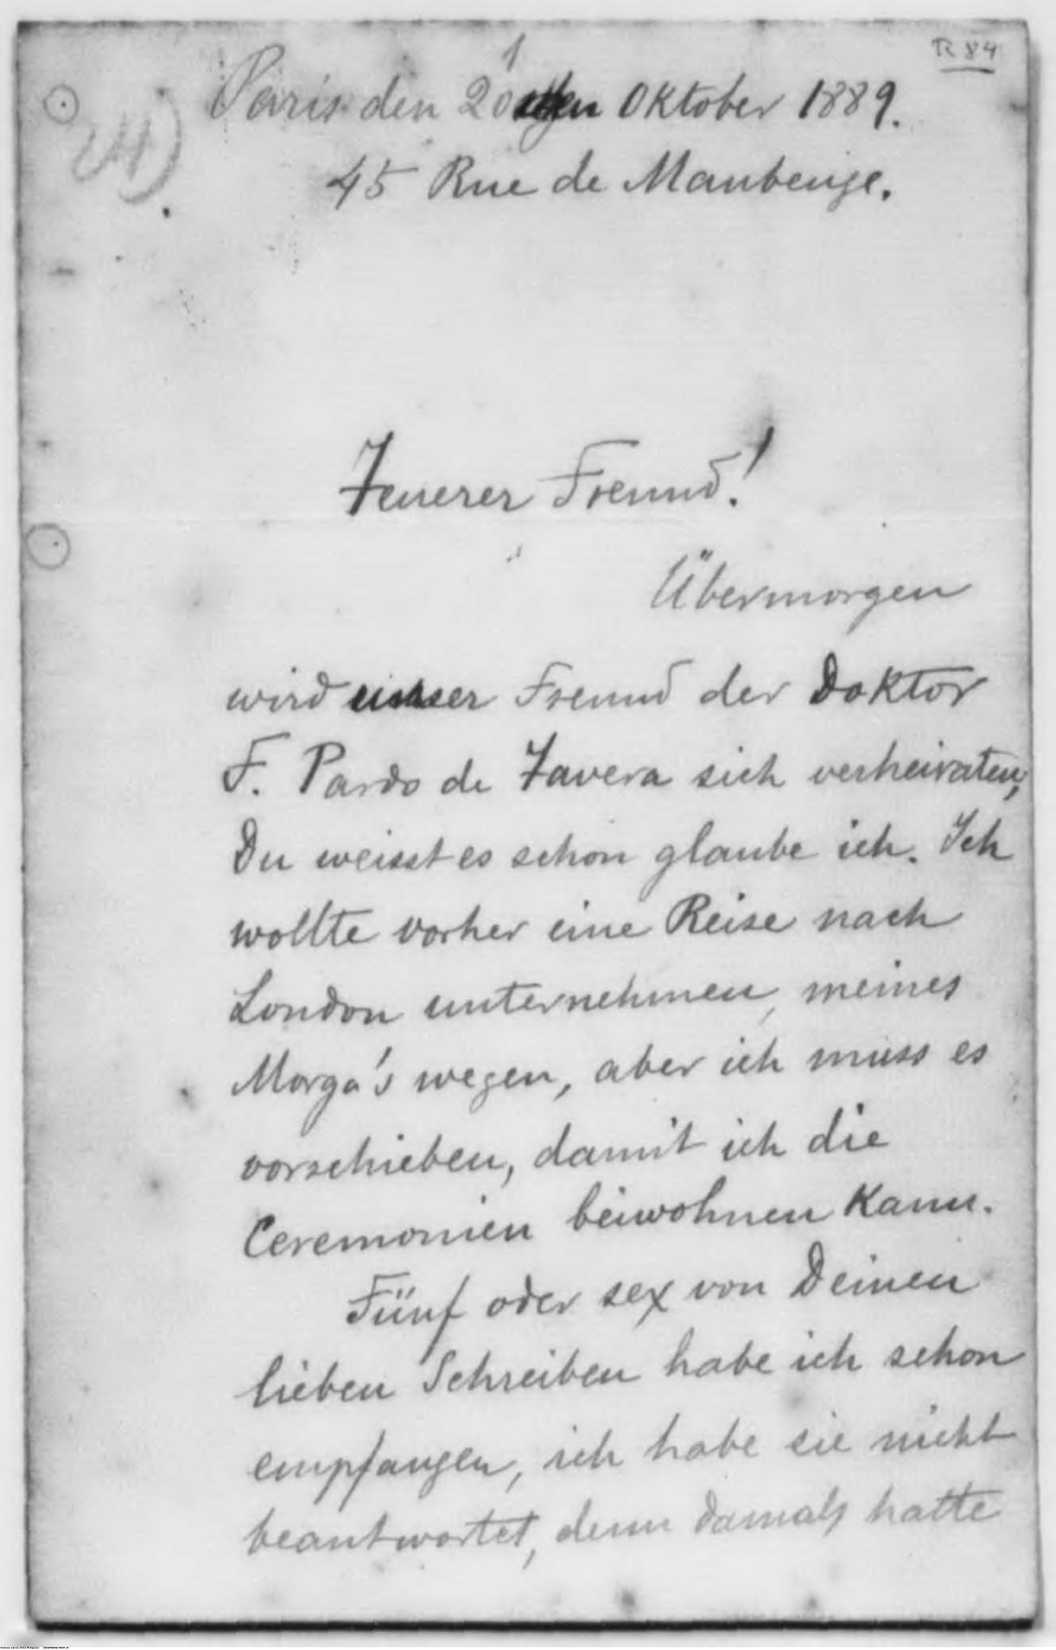 R 84
Paris den 20 Oktober 1889.
45 Rue de Maubeuge.
Teuerer Freund!
Übermorgen
wird unser Freund der Doktor
F. Pardo de Tavera sich verheiraten,
Du weisst es schon glaube ich. Ich
wollte vorher eine Reise nach
London unternehmen, meines
Morga's wegen, aber ich muss es
vorschieben, damit ich die
Ceremonien beiwohnen kann.
Fünf oder sex von Deinen
lieben Schreiben habe ich schon
empfangen, ich habe sie nicht
beantwortet, denn damals hatte